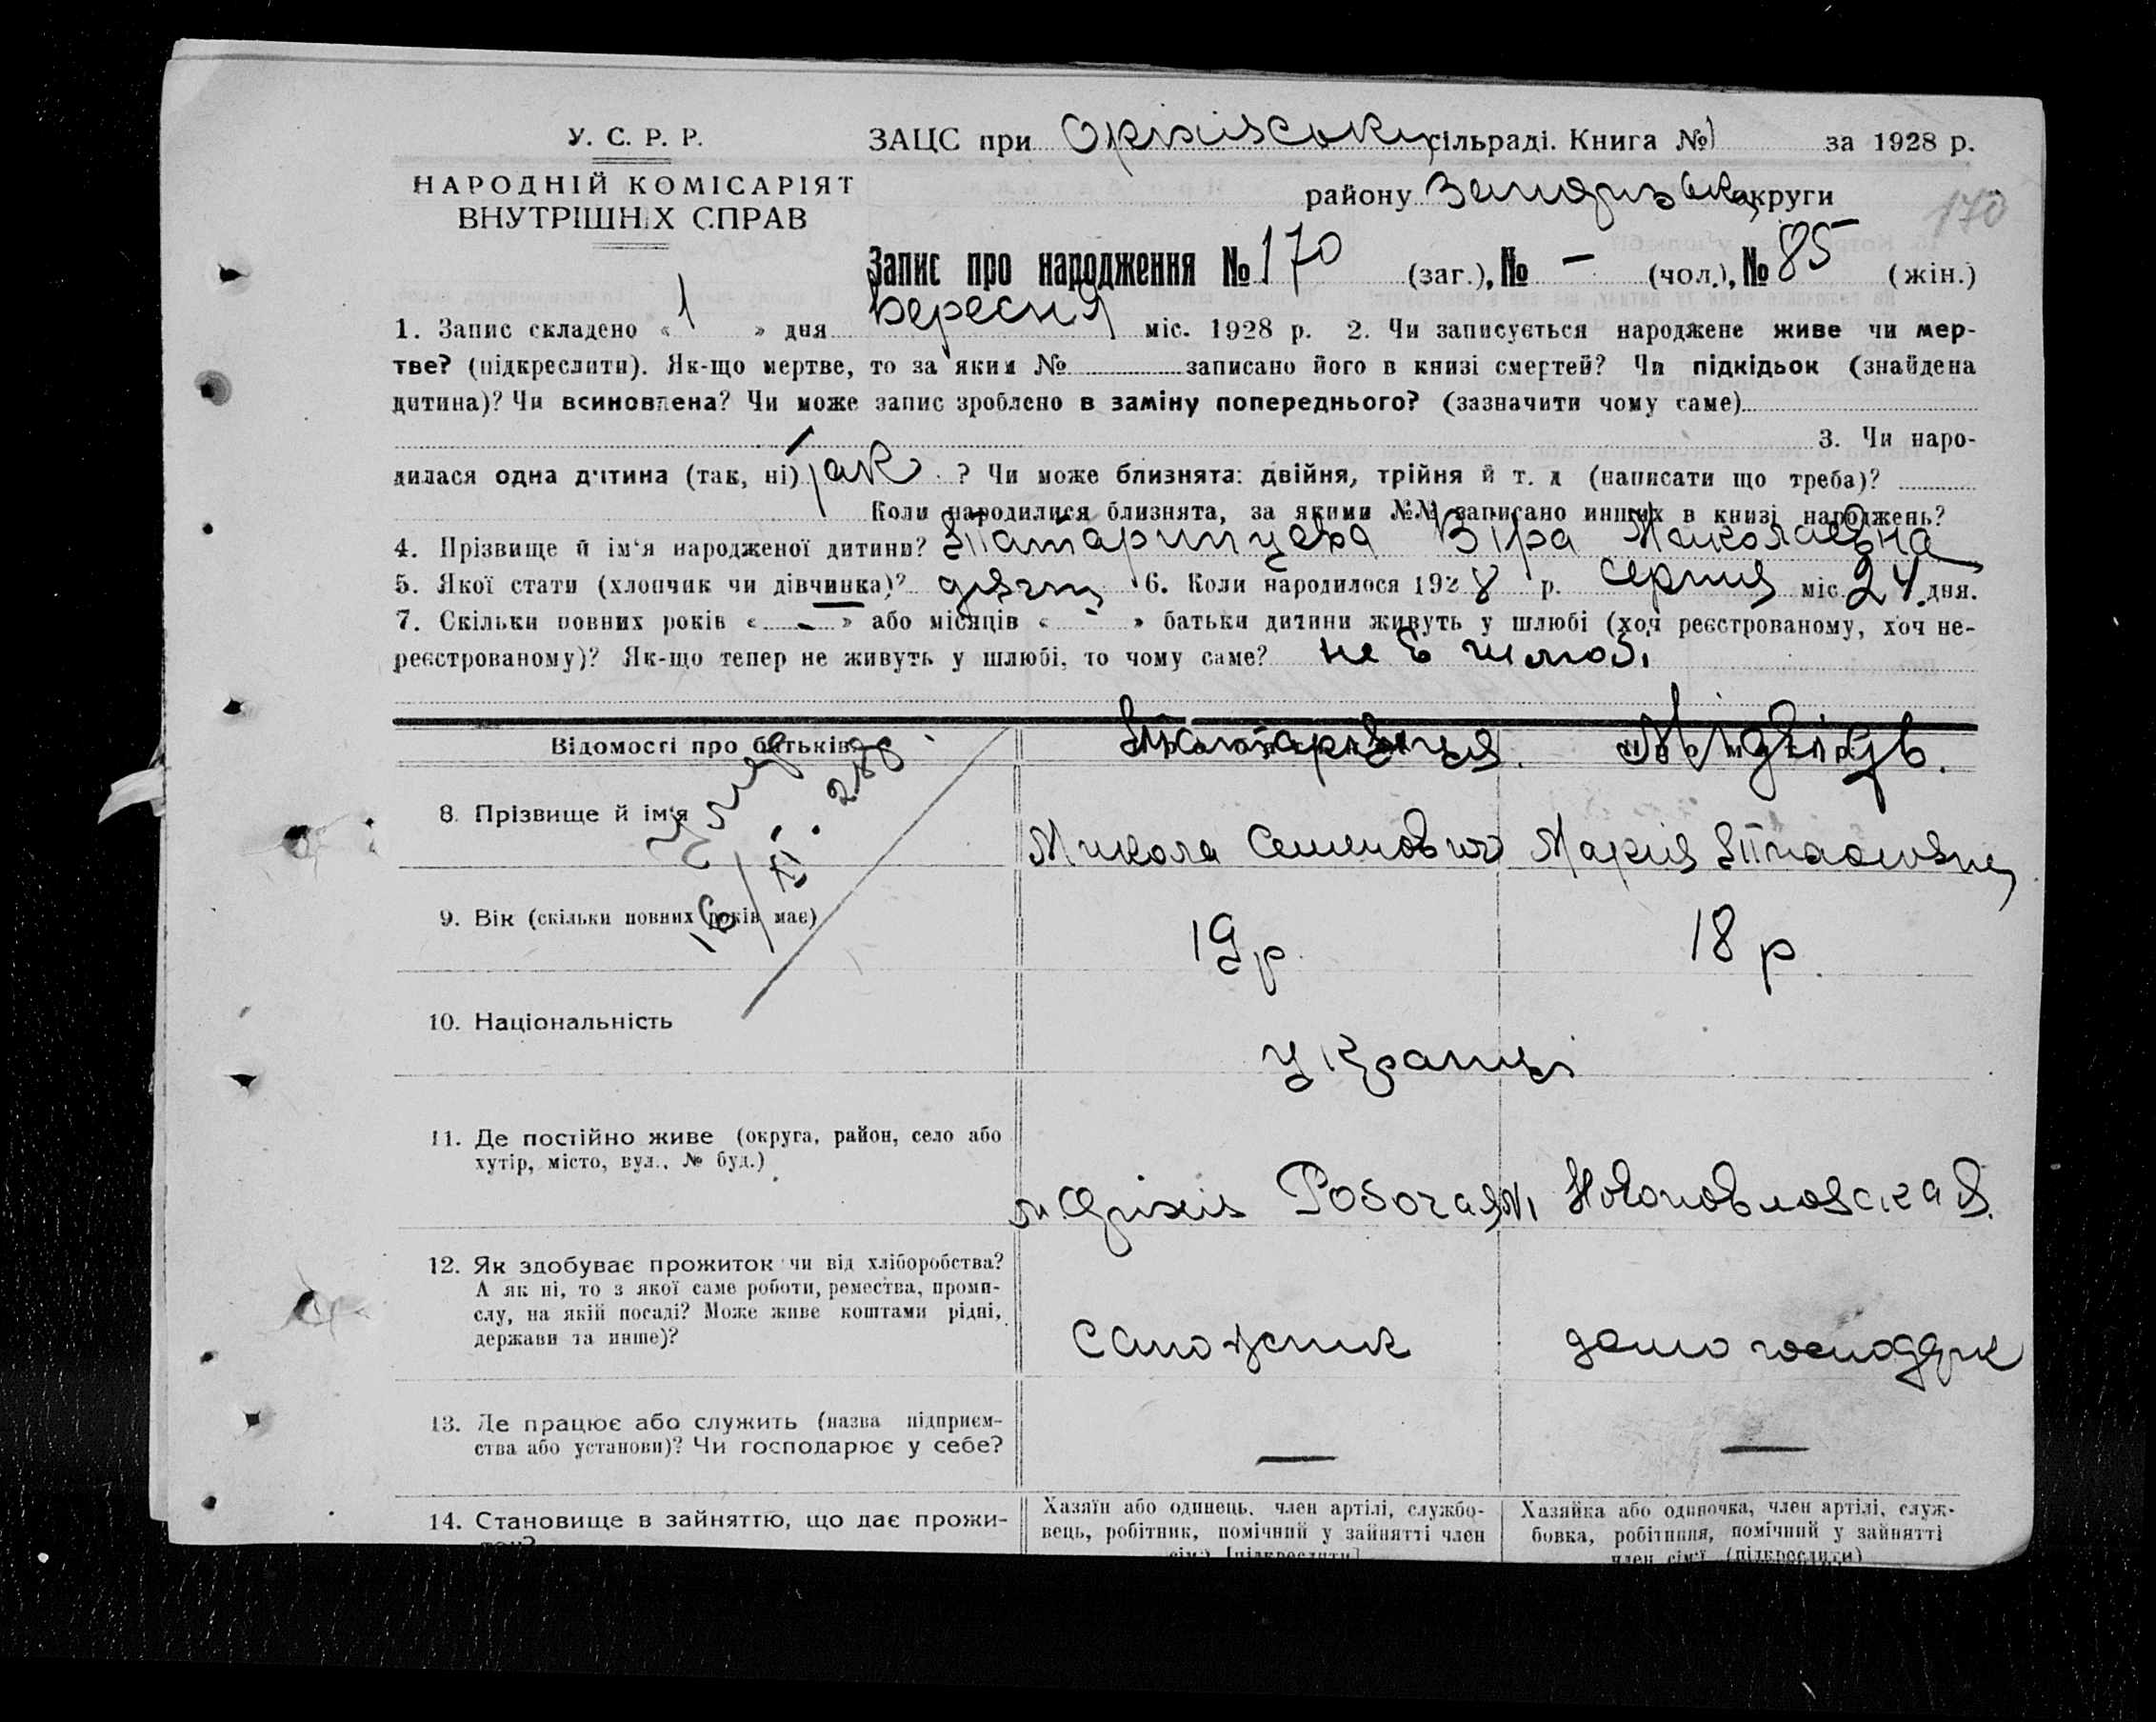 У. С. Р. Р.
НАРОДНІЙ КОМІСАРІЯТ
ВНУТРІШНІХ СПРАВ
ЗАЦС при Оріхівськ сільраді. Книга № 1 за 1928 р.
району округи
170
Запис про народження № 170 (заг.), № - (чол.), № 85 (жін.)
1. Запис складено « 1 » дня Вересня міс. 1928 р. 2. Чи записується народжене живе чи мер-
тве? (підкреслити). Як-що мертве, то за яким № записано його в книзі смертей? Чи підкідьок (знайдена
дитина)? Чи всиновлена? Чи може запис зроблено в заміну попереднього? (зазначити чому саме)
3. Чи наро-
дилася одна дитина (так, ні) так ? Чи може близнята: двійня, трійня й т. д (написати що треба)?
Коли народилися близнята, за якими №№ записано инших в книзі народжень?
4. Прізвище й ім‘я народженої дитини? Татаринцева Віра Миколаевна
5. Якої стати (хлопчик чи дівчинка)? дівчин 6. Коли народилося 1928 р. серпня міс. 24 дня.
7. Скільки повних років « - » або місяців « - » батьки дитини живуть у шлюбі (хоч реєстрованому, хоч не-
реєстрованому)? Як-що тепер не живуть у шлюбі, то чому саме? не в шлюбі
Відомості про батьків
8. Прізвище й ім‘я
Микола Семенович Мария
9. Вік (скільки повних років має)
19 р. 18 р.
10. Національність
Українці
11. Де постійно живе (округа, район, село або
хутір, місто, вул., № буд.)
м. Оріхів Робочая Новопавловская
12. Як здобуває прожиток чи від хліборобства?
А як ні, то з якої саме роботи, ремества, проми-
слу, на якій посаді? Може живе коштами рідні,
держави та инше)?
Сапожник домогосподарк
13. Де працює або служить (назва підприєм-
ства або установи)? Чи господарює у себе?
— —
14. Становище в зайняттю, що дає прожи-
Хазяїн або одинець, член артілі, службо-
вець, робітник, помічний у зайнятті член
Хазяйка або одиночка, член артілі, служ-
бовка, робітниця, помічний у зайнятті
член сім‘ї (підкреслити)